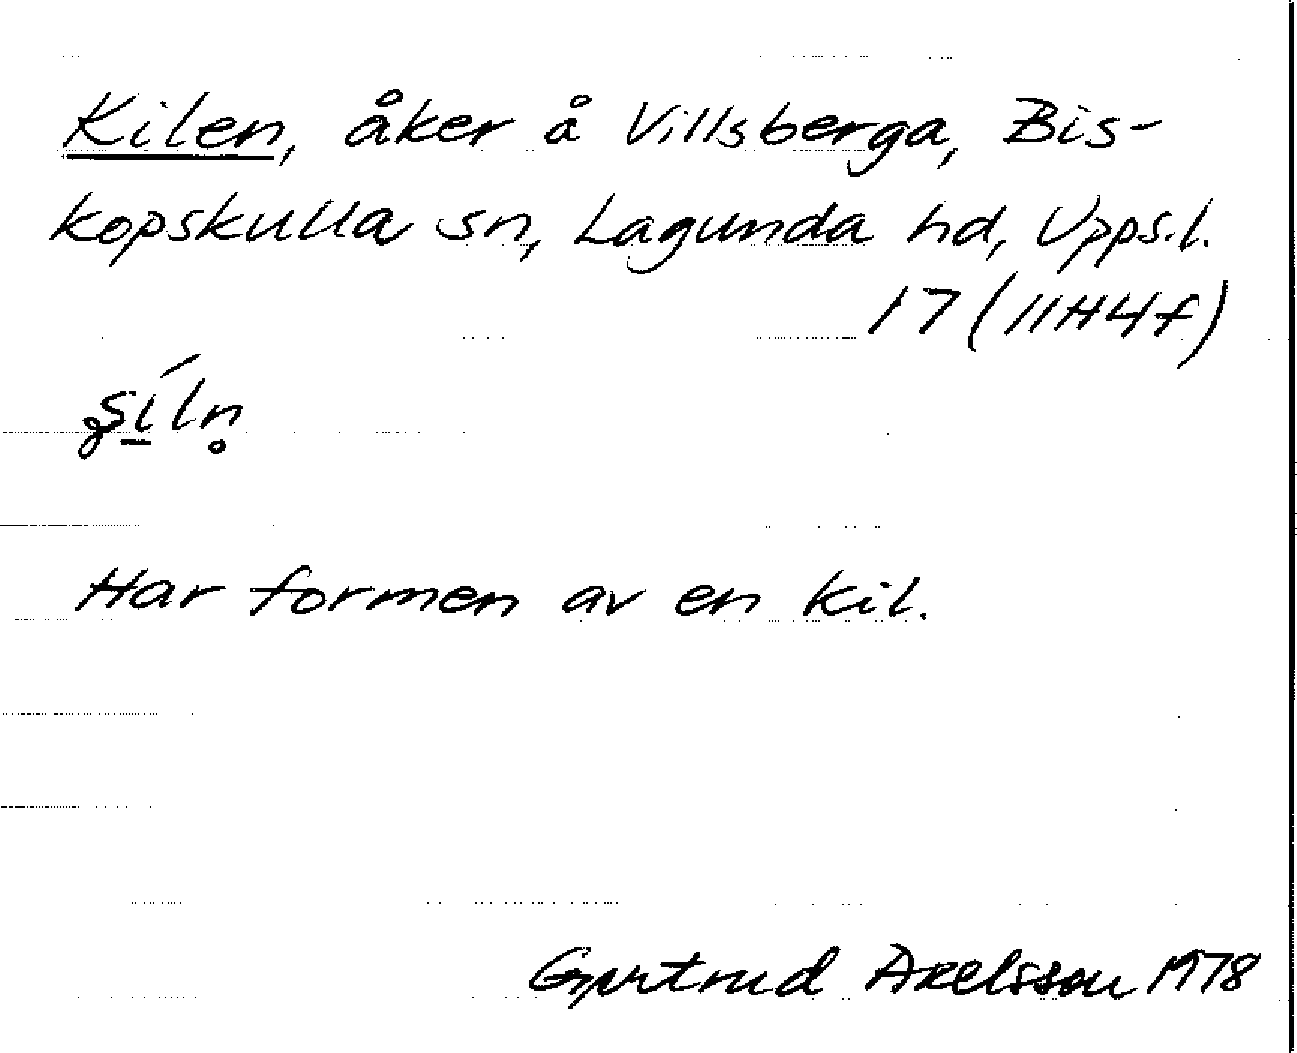 Kilen, åker å Villsberga, Bis-
kopskulla sn, Lagunda hd, Upps.l.
17 (11H4f)
Har formen av en kil.
Gertrud Axelsson 1978